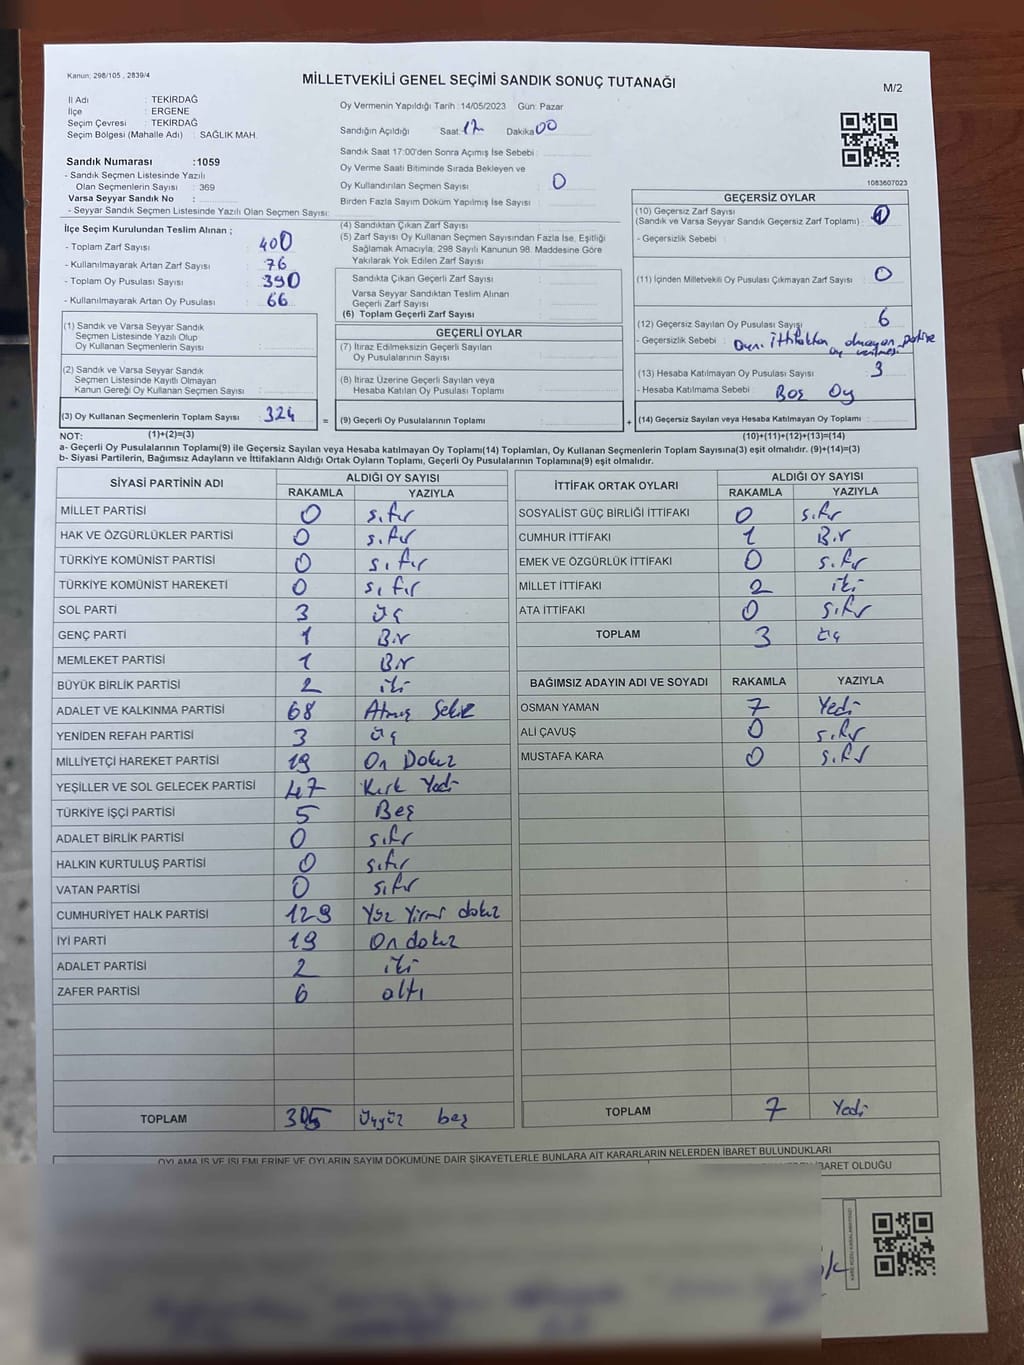 Kanun: 298/105 , 2839/4
MİLLETVEKİLİ GENEL SEÇİMİ SANDIK SONUÇ TUTANAĞI
M/2
İl Adı : TEKİRDAĞ
İlçe : ERGENE
Seçim Çevresi : TEKİRDAĞ
Seçim Bölgesi (Mahalle Adı) : SAĞLIK MAH.
Sandık Numarası :1059
- Sandık Seçmen Listesinde Yazılı
Olan Seçmenlerin Sayısı : 369
Varsa Seyyar Sandık No :
- Seyyar Sandık Seçmen Listesinde Yazılı Olan Seçmen Sayısı:
Oy Vermenin Yapıldığı Tarih :14/05/2023 Gün: Pazar
Sandığın Açıldığı Saat: 17 Dakika: 00
Sandık Saat 17:00'den Sonra Açımış İse Sebebi :
Oy Verme Saati Bitiminde Sırada Bekleyen ve
Oy Kullandırılan Seçmen Sayısı : 0
Birden Fazla Sayım Döküm Yapılmış İse Sayısı :
1083607023
İlçe Seçim Kurulundan Teslim Alınan ;
- Toplam Zarf Sayısı : 400
- Kullanılmayarak Artan Zarf Sayısı : 76
- Toplam Oy Pusulası Sayısı : 390
- Kullanılmayarak Artan Oy Pusulası : 66
(1) Sandık ve Varsa Seyyar Sandık
Seçmen Listesinde Yazılı Olup
Oy Kullanan Seçmenlerin Sayısı :
(2) Sandık ve Varsa Seyyar Sandık
Seçmen Listesinde Kayıtlı Olmayan
Kanun Gereği Oy Kullanan Seçmen Sayısı :
(3) Oy Kullanan Seçmenlerin Toplam Sayısı : 324
(1)+(2)=(3)
(4) Sandıktan Çıkan Zarf Sayısı :
(5) Zarf Sayısı Oy Kullanan Seçmen Sayısından Fazla İse, Eşitliği
Sağlamak Amacıyla, 298 Sayılı Kanunun 98. Maddesine Göre
Yakılarak Yok Edilen Zarf Sayısı :
Sandıkta Çıkan Geçerli Zarf Sayısı :
Varsa Seyyar Sandıktan Teslim Alınan
Geçerli Zarf Sayısı :
(6) Toplam Geçerli Zarf Sayısı :
GEÇERLİ OYLAR
(7) İtiraz Edilmeksizin Geçerli Sayılan
Oy Pusulalarının Sayısı :
(8) İtiraz Üzerine Geçerli Sayılan veya
Hesaba Katılan Oy Pusulası Toplamı :
= (9) Geçerli Oy Pusulalarının Toplamı :
GEÇERSİZ OYLAR
(10) Geçersiz Zarf Sayısı
(Sandık ve Varsa Seyyar Sandık Geçersiz Zarf Toplamı) : 0
- Geçersizlik Sebebi :
(11) İçinden Milletvekili Oy Pusulası Çıkmayan Zarf Sayısı : 0
(12) Geçersiz Sayılan Oy Pusulası Sayısı : 6
- Geçersizlik Sebebi : Aynı İttifaktan olmayan partiye
oy verilmesi
(13) Hesaba Katılmayan Oy Pusulası Sayısı : 3
- Hesaba Katılmama Sebebi : Boş Oy
+ (14) Geçersiz Sayılan veya Hesaba Katılmayan Oy Toplamı :
(10)+(11)+(12)+(13)=(14)
NOT:
a- Geçerli Oy Pusulalarının Toplamı(9) ile Geçersiz Sayılan veya Hesaba katılmayan Oy Toplamı(14) Toplamları, Oy Kullanan Seçmenlerin Toplam Sayısına(3) eşit olmalıdır. (9)+(14)=(3)
b- Siyasi Partilerin, Bağımsız Adayların ve İttifakların Aldığı Ortak Oyların Toplamı, Geçerli Oy Pusulalarının Toplamına(9) eşit olmalıdır.
SİYASİ PARTİNİN ADI ALDIĞI OY SAYISI
RAKAMLA YAZIYLA
MİLLET PARTİSİ 0 sıfır
HAK VE ÖZGÜRLÜKLER PARTİSİ 0 sıfır
TÜRKİYE KOMÜNİST PARTİSİ 0 sıfır
TÜRKİYE KOMÜNİST HAREKETİ 0 sıfır
SOL PARTİ 3 üç
GENÇ PARTİ 1 Bir
MEMLEKET PARTİSİ 1 Bir
BÜYÜK BİRLİK PARTİSİ 2 iki
ADALET VE KALKINMA PARTİSİ 68 Atmış Sekiz
YENİDEN REFAH PARTİSİ 3 üç
MİLLİYETÇİ HAREKET PARTİSİ 19 On Dokuz
YEŞİLLER VE SOL GELECEK PARTİSİ 47 Kırk Yedi
TÜRKİYE İŞÇİ PARTİSİ 5 Beş
ADALET BİRLİK PARTİSİ 0 sıfır
HALKIN KURTULUŞ PARTİSİ 0 sıfır
VATAN PARTİSİ 0 sıfır
CUMHURİYET HALK PARTİSİ 129 Yüz Yirmi dokuz
İYİ PARTİ 19 On dokuz
ADALET PARTİSİ 2 iki
ZAFER PARTİSİ 6 altı
TOPLAM 305 Üçyüz beş
İTTİFAK ORTAK OYLARI ALDIĞI OY SAYISI
RAKAMLA YAZIYLA
SOSYALİST GÜÇ BİRLİĞİ İTTİFAKI 0 sıfır
CUMHUR İTTİFAKI 1 Bir
EMEK VE ÖZGÜRLÜK İTTİFAKI 0 sıfır
MİLLET İTTİFAKI 2 iki
ATA İTTİFAKI 0 sıfır
TOPLAM 3 üç
BAĞIMSIZ ADAYIN ADI VE SOYADI RAKAMLA YAZIYLA
OSMAN YAMAN 7 Yedi
ALİ ÇAVUŞ 0 sıfır
MUSTAFA KARA 0 sıfır
TOPLAM 7 Yedi
OYLAMA İŞ VE İŞLEMLERİNE VE OYLARIN SAYIM DÖKÜMÜNE DAİR ŞİKAYETLERLE BUNLARA AİT KARARLARIN NELERDEN İBARET BULUNDUKLARI
İBARET OLDUĞU